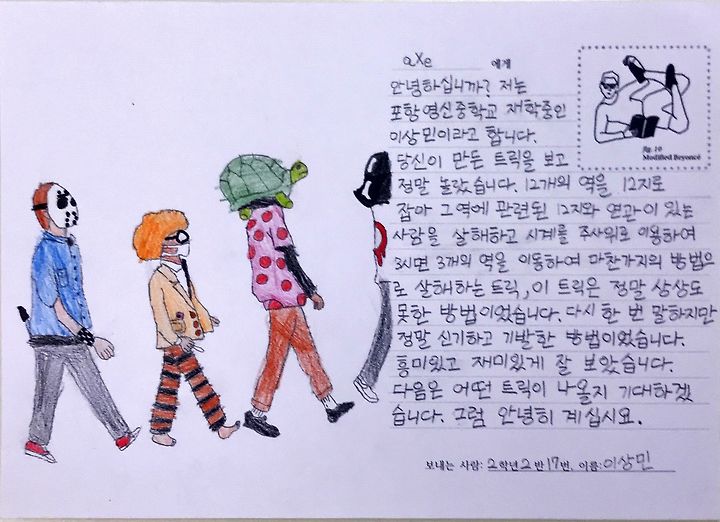 aXe 에게
안녕하십니까? 저는
포항영신중학교 재학중인
이상민이라고 합니다.
당신이 만든 트릭을 보고
정말 놀랐습니다. 12개의 역을 12지로
잡아 그역에 관련된 12지와 연관이 있는
사람을 살해하고 시계를 주사위로 이용하여
3시면 3개의 역을 이동하여 마찬가지의 방법으
로 살해하는 트릭, 이 트릭은 정말 상상도
못한 방법이었습니다. 다시 한 번 말하지만
정말 신기하고 기발한 방법이었습니다.
흥미있고 재미있게 잘 보았습니다.
다음은 어떤 트릭이 나올지 기대하겠
습니다. 그럼 안녕히 계십시요.
보내는 사람: 2학년 2반 17번, 이름: 이상민
fig. 10
Modified Beyoncé